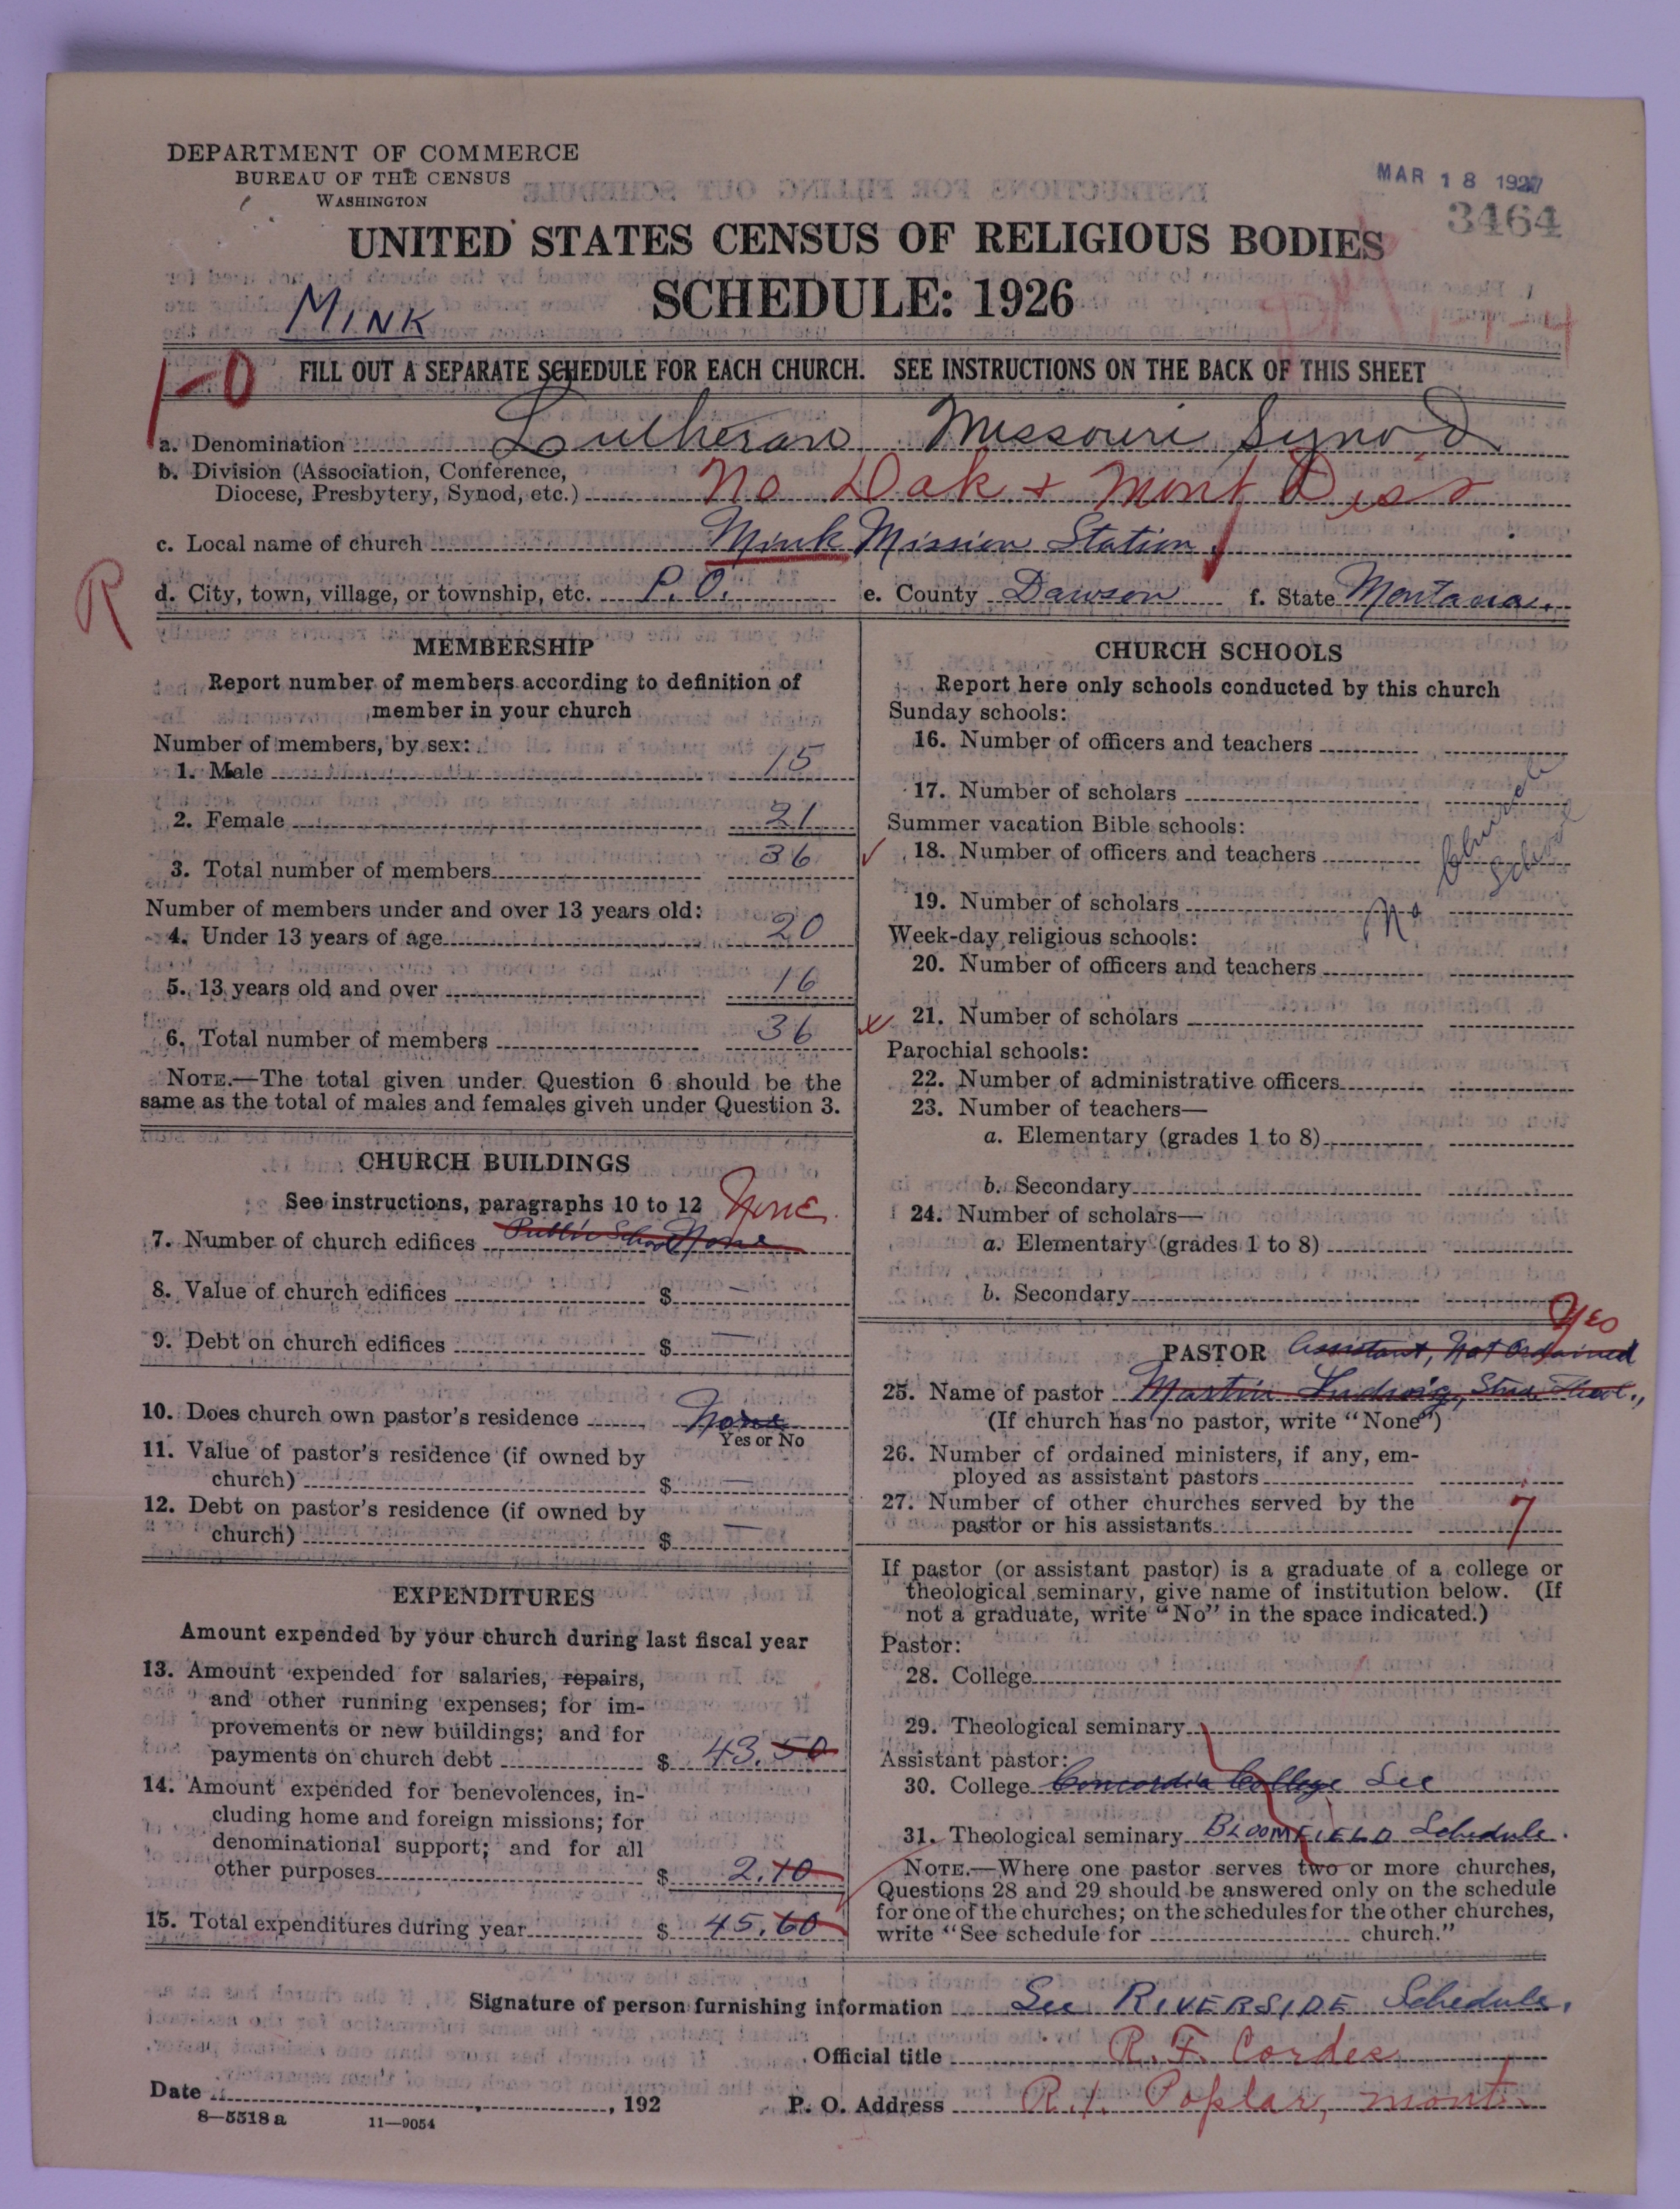 DEPARTMENT OF COMMERCE
BUREAU OF THE CENSUS
WASHINGTON
MAR 18 1927
3464
UNITED STATES CENSUS OF RELIGIOUS BODIES
SCHEDULE: 1926
MINK
1-0
FILL OUT A SEPARATE SCHEDULE FOR EACH CHURCH. SEE INSTRUCTIONS ON THE BACK OF THIS SHEET
a. Denomination Lutheran Missouri Synod
b. Division (Association, Conference,
Diocese, Presbytery, Synod, etc.) No Dak + Mont Dis
c. Local name of church Mink Mission Station
R
d. City, town, village, or township, etc. P. O. e. County Dawson f. State Montana.
MEMBERSHIP
Report number of members according to definition of
member in your church
Number of members, by sex:
1. Male 15
2. Female 21
3. Total number of members 36
Number of members under and over 13 years old:
4. Under 13 years of age 20
5. 13 years old and over 16
6. Total number of members 36
NOTE.—The total given under Question 6 should be the
same as the total of males and females given under Question 3.
CHURCH BUILDINGS
See instructions, paragraphs 10 to 12 None
7. Number of church edifices Public School None
8. Value of church edifices $ —
9. Debt on church edifices $ —
10. Does church own pastor's residence None
Yes or No
11. Value of pastor's residence (if owned by
church) $ —
12. Debt on pastor's residence (if owned by
church) $ —
EXPENDITURES
Amount expended by your church during last fiscal year
13. Amount expended for salaries, repairs,
and other running expenses; for im-
provements or new buildings; and for
payments on church debt $ 43.50
14. Amount expended for benevolences, in-
cluding home and foreign missions; for
denominational support; and for all
other purposes $ 2.10
15. Total expenditures during year $ 45.60
CHURCH SCHOOLS
Report here only schools conducted by this church
Sunday schools:
16. Number of officers and teachers
17. Number of scholars
Summer vacation Bible schools:
18. Number of officers and teachers
19. Number of scholars
No Church School
Week-day religious schools:
20. Number of officers and teachers
21. Number of scholars
Parochial schools:
22. Number of administrative officers
23. Number of teachers—
a. Elementary (grades 1 to 8)
b. Secondary
24. Number of scholars—
a. Elementary (grades 1 to 8)
b. Secondary
Yes
PASTOR Assistant, Not Ordained
25. Name of pastor Martin Ludwig, Stud. Theol.,
(If church has no pastor, write "None")
26. Number of ordained ministers, if any, em-
ployed as assistant pastors
27. Number of other churches served by the
pastor or his assistants 7
If pastor (or assistant pastor) is a graduate of a college or
theological seminary, give name of institution below. (If
not a graduate, write "No" in the space indicated.)
Pastor:
28. College
29. Theological seminary
Assistant pastor:
30. College Concordia College See
31. Theological seminary BLOOMFIELD Schedule.
NOTE.—Where one pastor serves two or more churches,
Questions 28 and 29 should be answered only on the schedule
for one of the churches; on the schedules for the other churches,
write "See schedule for church."
Signature of person furnishing information See RIVERSIDE Schedule.
Official title R. F. Cordes
Date , 192
P. O. Address R. 1. Poplar, mont.
8—5518 a 11—9054